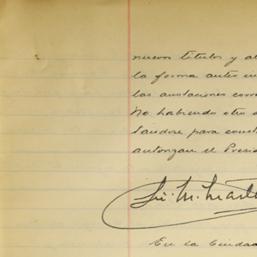 nuevos títulos y al
la forma antes in
las anotaciones corre
No habiendo otro a
tandose para const
autorizan el Presid
En la Ciudad